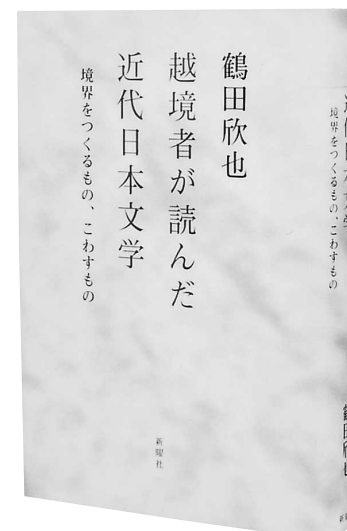 鶴田欣也
越境者が読んだ
近代日本文学
境界をつくるもの、こわすもの
新曜社
境界をつくるもの、こわすもの
鶴田欣也